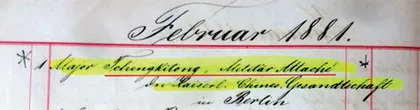 Februar 1881.
* 1 Major Tchengkitong, Militär Attaché *
der Kaiserl. Chines. Gesandtschaft
in Berlin